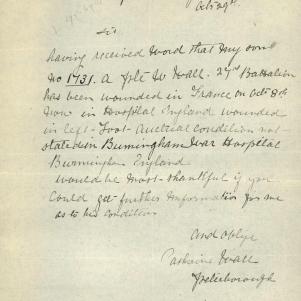 Oct 29th
Sir
having received word that my son
No 1731. A
Wall. 27th Battalion
has been wounded in France on Oct 8th
now in Hospital England wounded
in left-foot-Actual condition not
stated in Burmingham War Hospital
Burmingham England
would be most-thankful if you
could get-further Information for me
as to his condition
and oblige
Catherine Wall
Peterborough